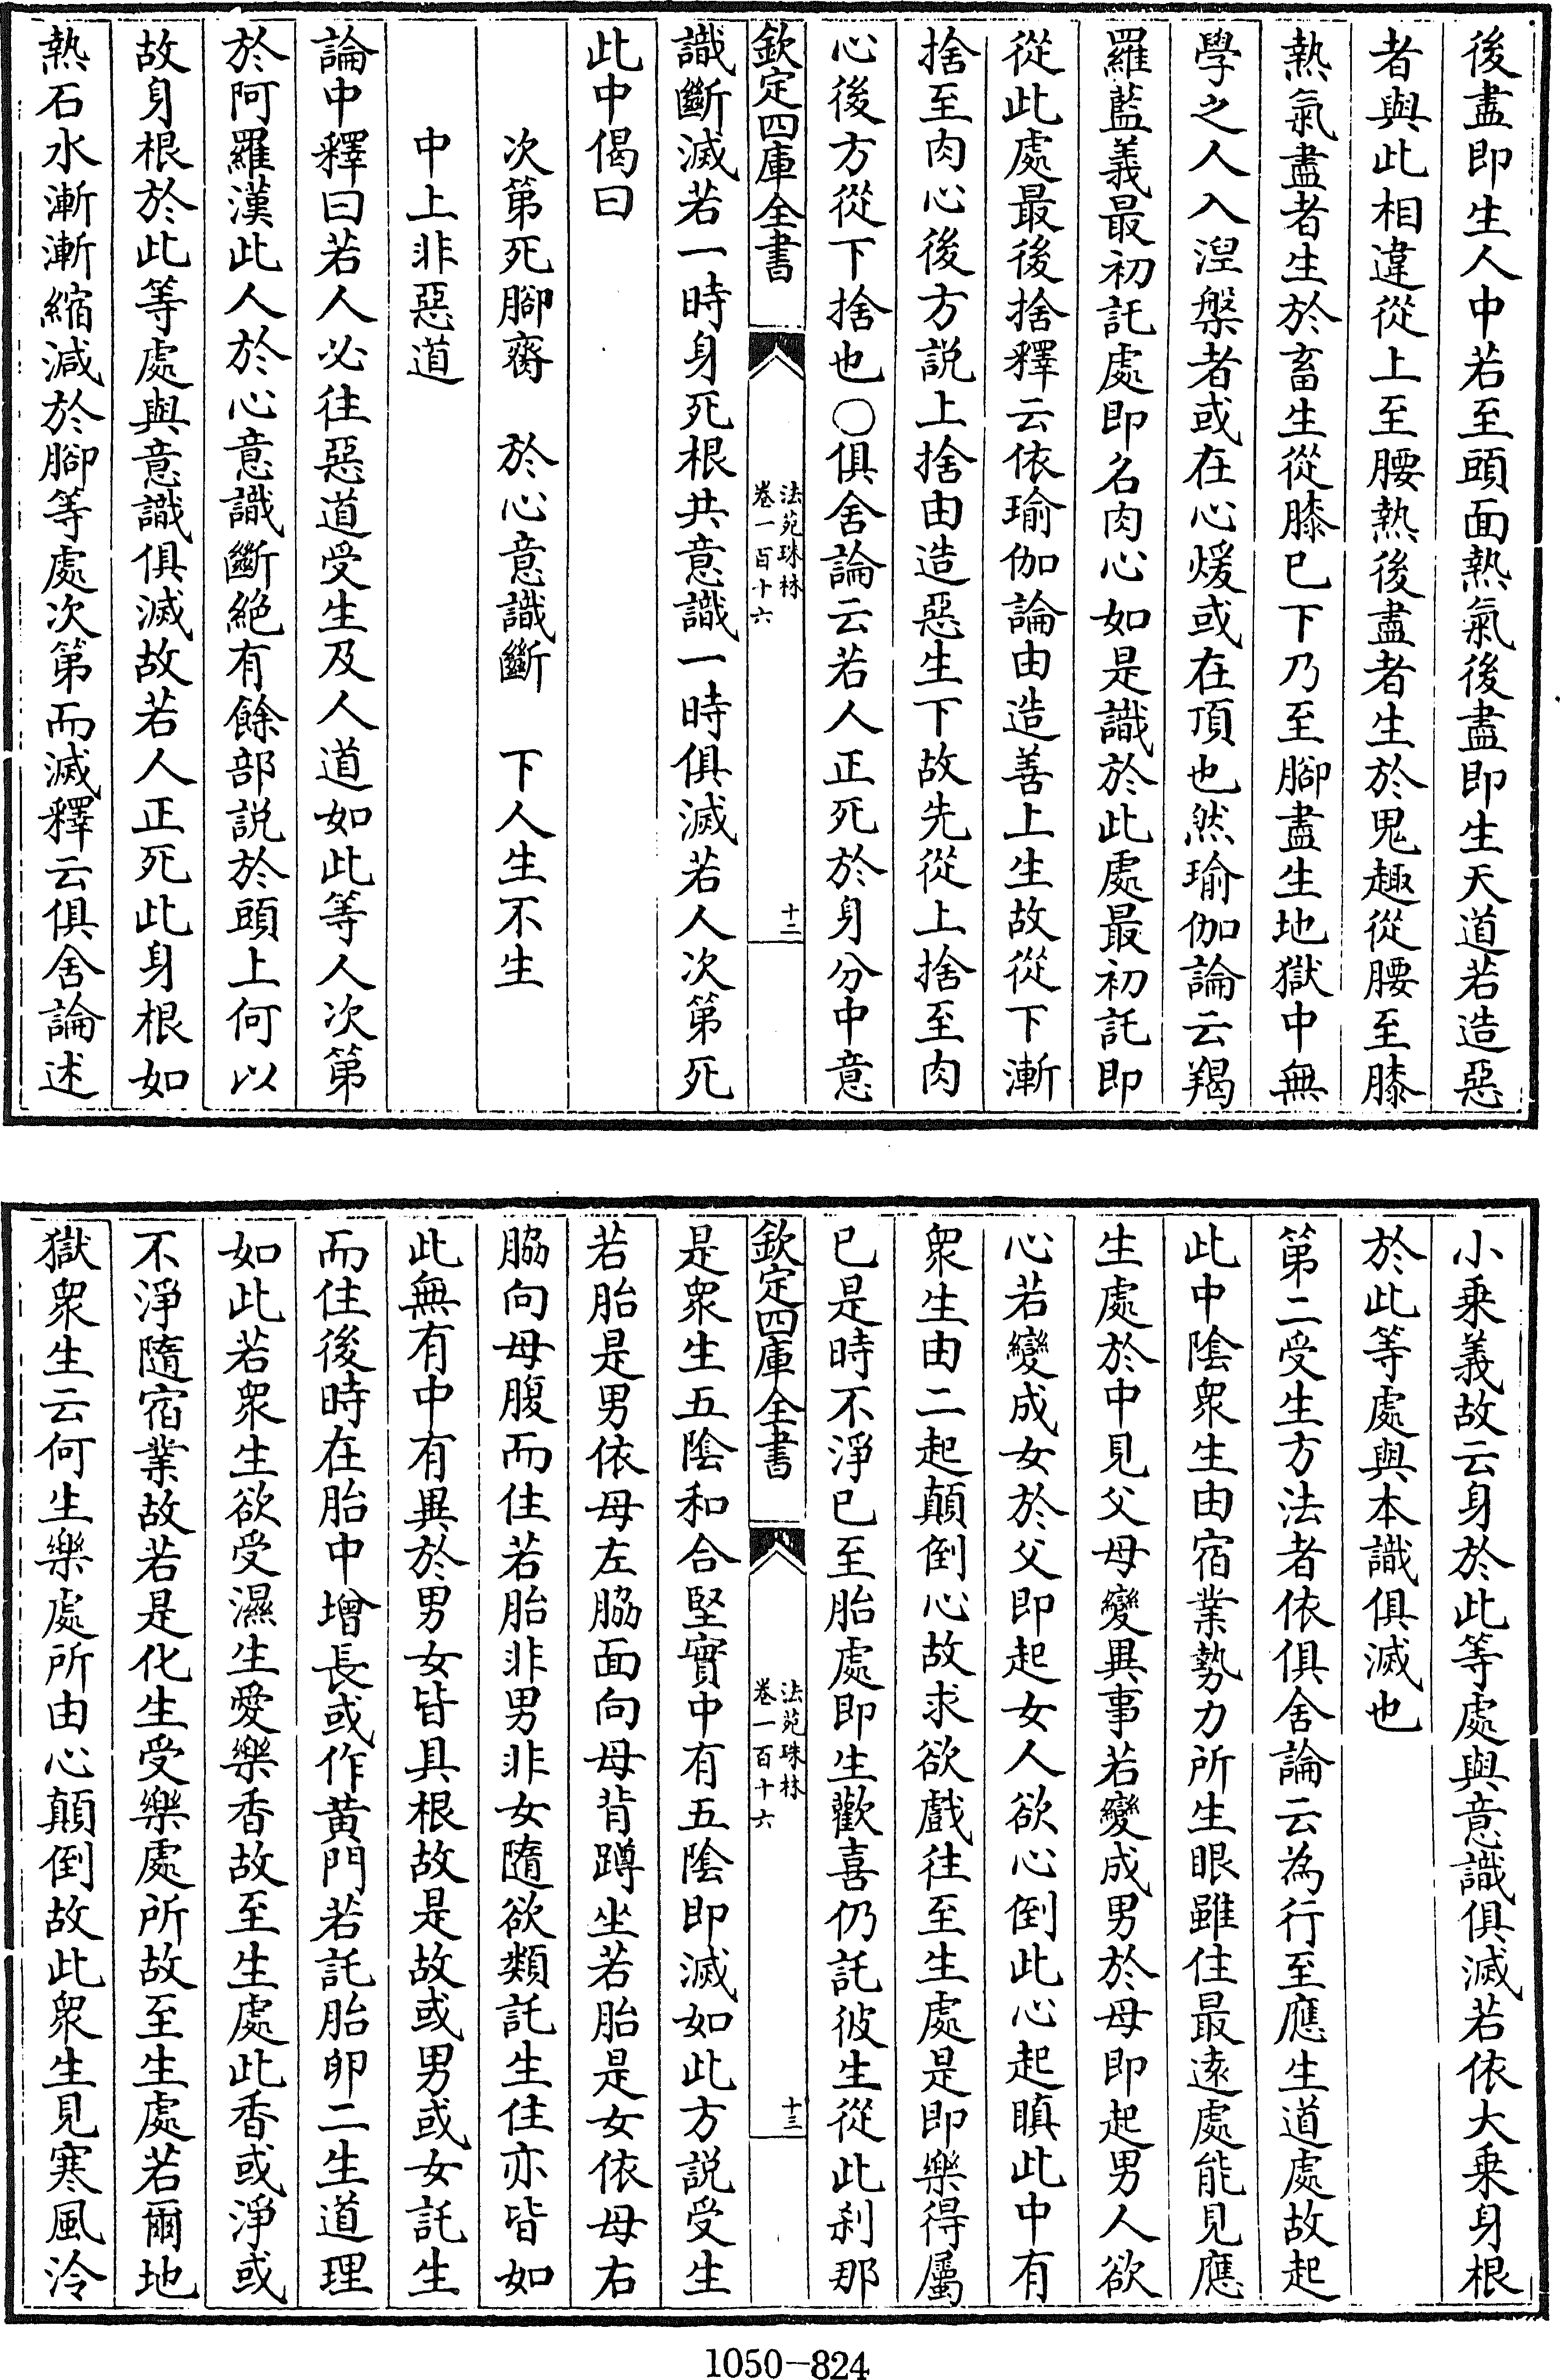 後盡即生人中若至頭面熱氣後盡即生天道若造惡
者與此相違從上至腰熱後盡者生於鬼趣從腰至膝
熱氣盡者生於畜生從膝已下乃至腳盡生地獄中無
學之人入涅槃者或在心煖或在頂也然瑜伽論云羯
羅藍義最初託處即名肉心如是識於此處最初託即
從此處最後捨釋云依瑜伽論由造善上生故從下漸
捨至肉心後方説上捨由造惡生下故先從上捨至肉
心後方從下捨也○俱舍論云若人正死於身分中意
欽定四庫全書
法苑珠林
卷一百十六
十二
識斷滅若一時身死根共意識一時俱滅若人次第死
此中偈曰
次第死腳臍　於心意識斷　下人生不生
中上非惡道
論中釋曰若人必往惡道受生及人道如此等人次第
於阿羅漢此人於心意識斷絶有餘部説於頭上何以
故身根於此等處與意識俱滅故若人正死此身根如
熱石水漸漸縮減於腳等處次第而滅釋云俱舍論述
小乗義故云身於此等處與意識俱滅若依大乗身根
於此等處與本識俱滅也
第二受生方法者依俱舍論云為行至應生道處故起
此中陰衆生由宿業勢力所生眼雖住最遠處能見應
生處於中見父母變異事若變成男於母即起男人欲
心若變成女於父即起女人欲心倒此心起瞋此中有
衆生由二起顛倒心故求欲戲往至生處是即樂得屬
已是時不淨已至胎處即生歡喜仍託彼生從此刹那
欽定四庫全書
法苑珠林
卷一百十六
十三
是衆生五陰和合堅實中有五陰即滅如此方説受生
若胎是男依母左脇面向母背蹲坐若胎是女依母右
脇向母腹而住若胎非男非女隨欲類託生住亦皆如
此無有中有異於男女皆具根故是故或男或女託生
而住後時在胎中增長或作黄門若託胎卵二生道理
如此若衆生欲受濕生愛樂香故至生處此香或淨或
不淨隨宿業故若是化生受樂處所故至生處若爾地
獄衆生云何生樂處所由心顛倒故此衆生見寒風泠
1050-824